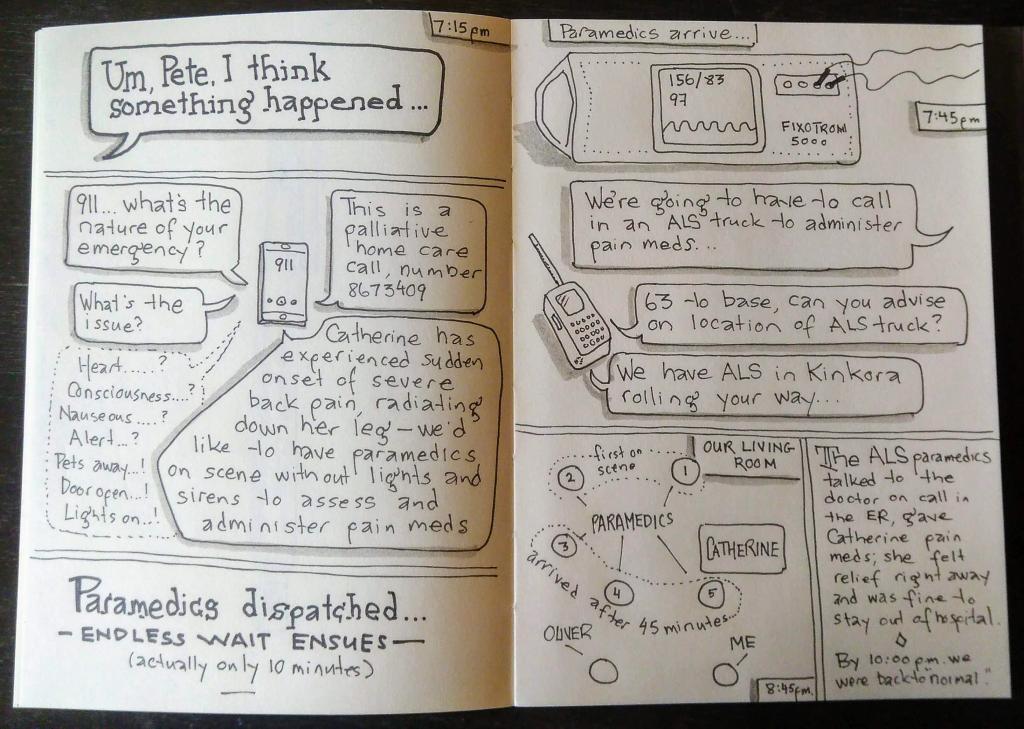 7:15pm
Um, Pete, I think
something happened...
911... what's the
nature of your
emergency?
911
This is a
palliative
home care
call, number
8673409
What's the
issue?
Heart......?
Consciousness....?
Nauseous.....?
Alert...?
Pets away...!
Door open...!
Lights on..!
Catherine has
experienced sudden
onset of severe
back pain, radiating
down her leg—we'd
like to have paramedics
on scene without lights and
sirens to assess and
administer pain meds
Paramedics dispatched...
— ENDLESS WAIT ENSUES —
(actually only 10 minutes)
Paramedics arrive...
156/83
97
FIXOTROM
5000
7:45pm
We're going to have to call
in an ALS truck to administer
pain meds...
63 to base, can you advise
on location of ALS truck?
We have ALS in Kinkora
rolling your way...
OUR LIVING
ROOM
first on
scene
1
2
PARAMEDICS
3
4
5
CATHERINE
arrived after 45 minutes...
OLIVER
ME
8:45pm
The ALS paramedics
talked to the
doctor on call in
the ER, gave
Catherine pain
meds; she felt
relief right away
and was fine to
stay out of hospital.
By 10:00pm we
were back to "normal."